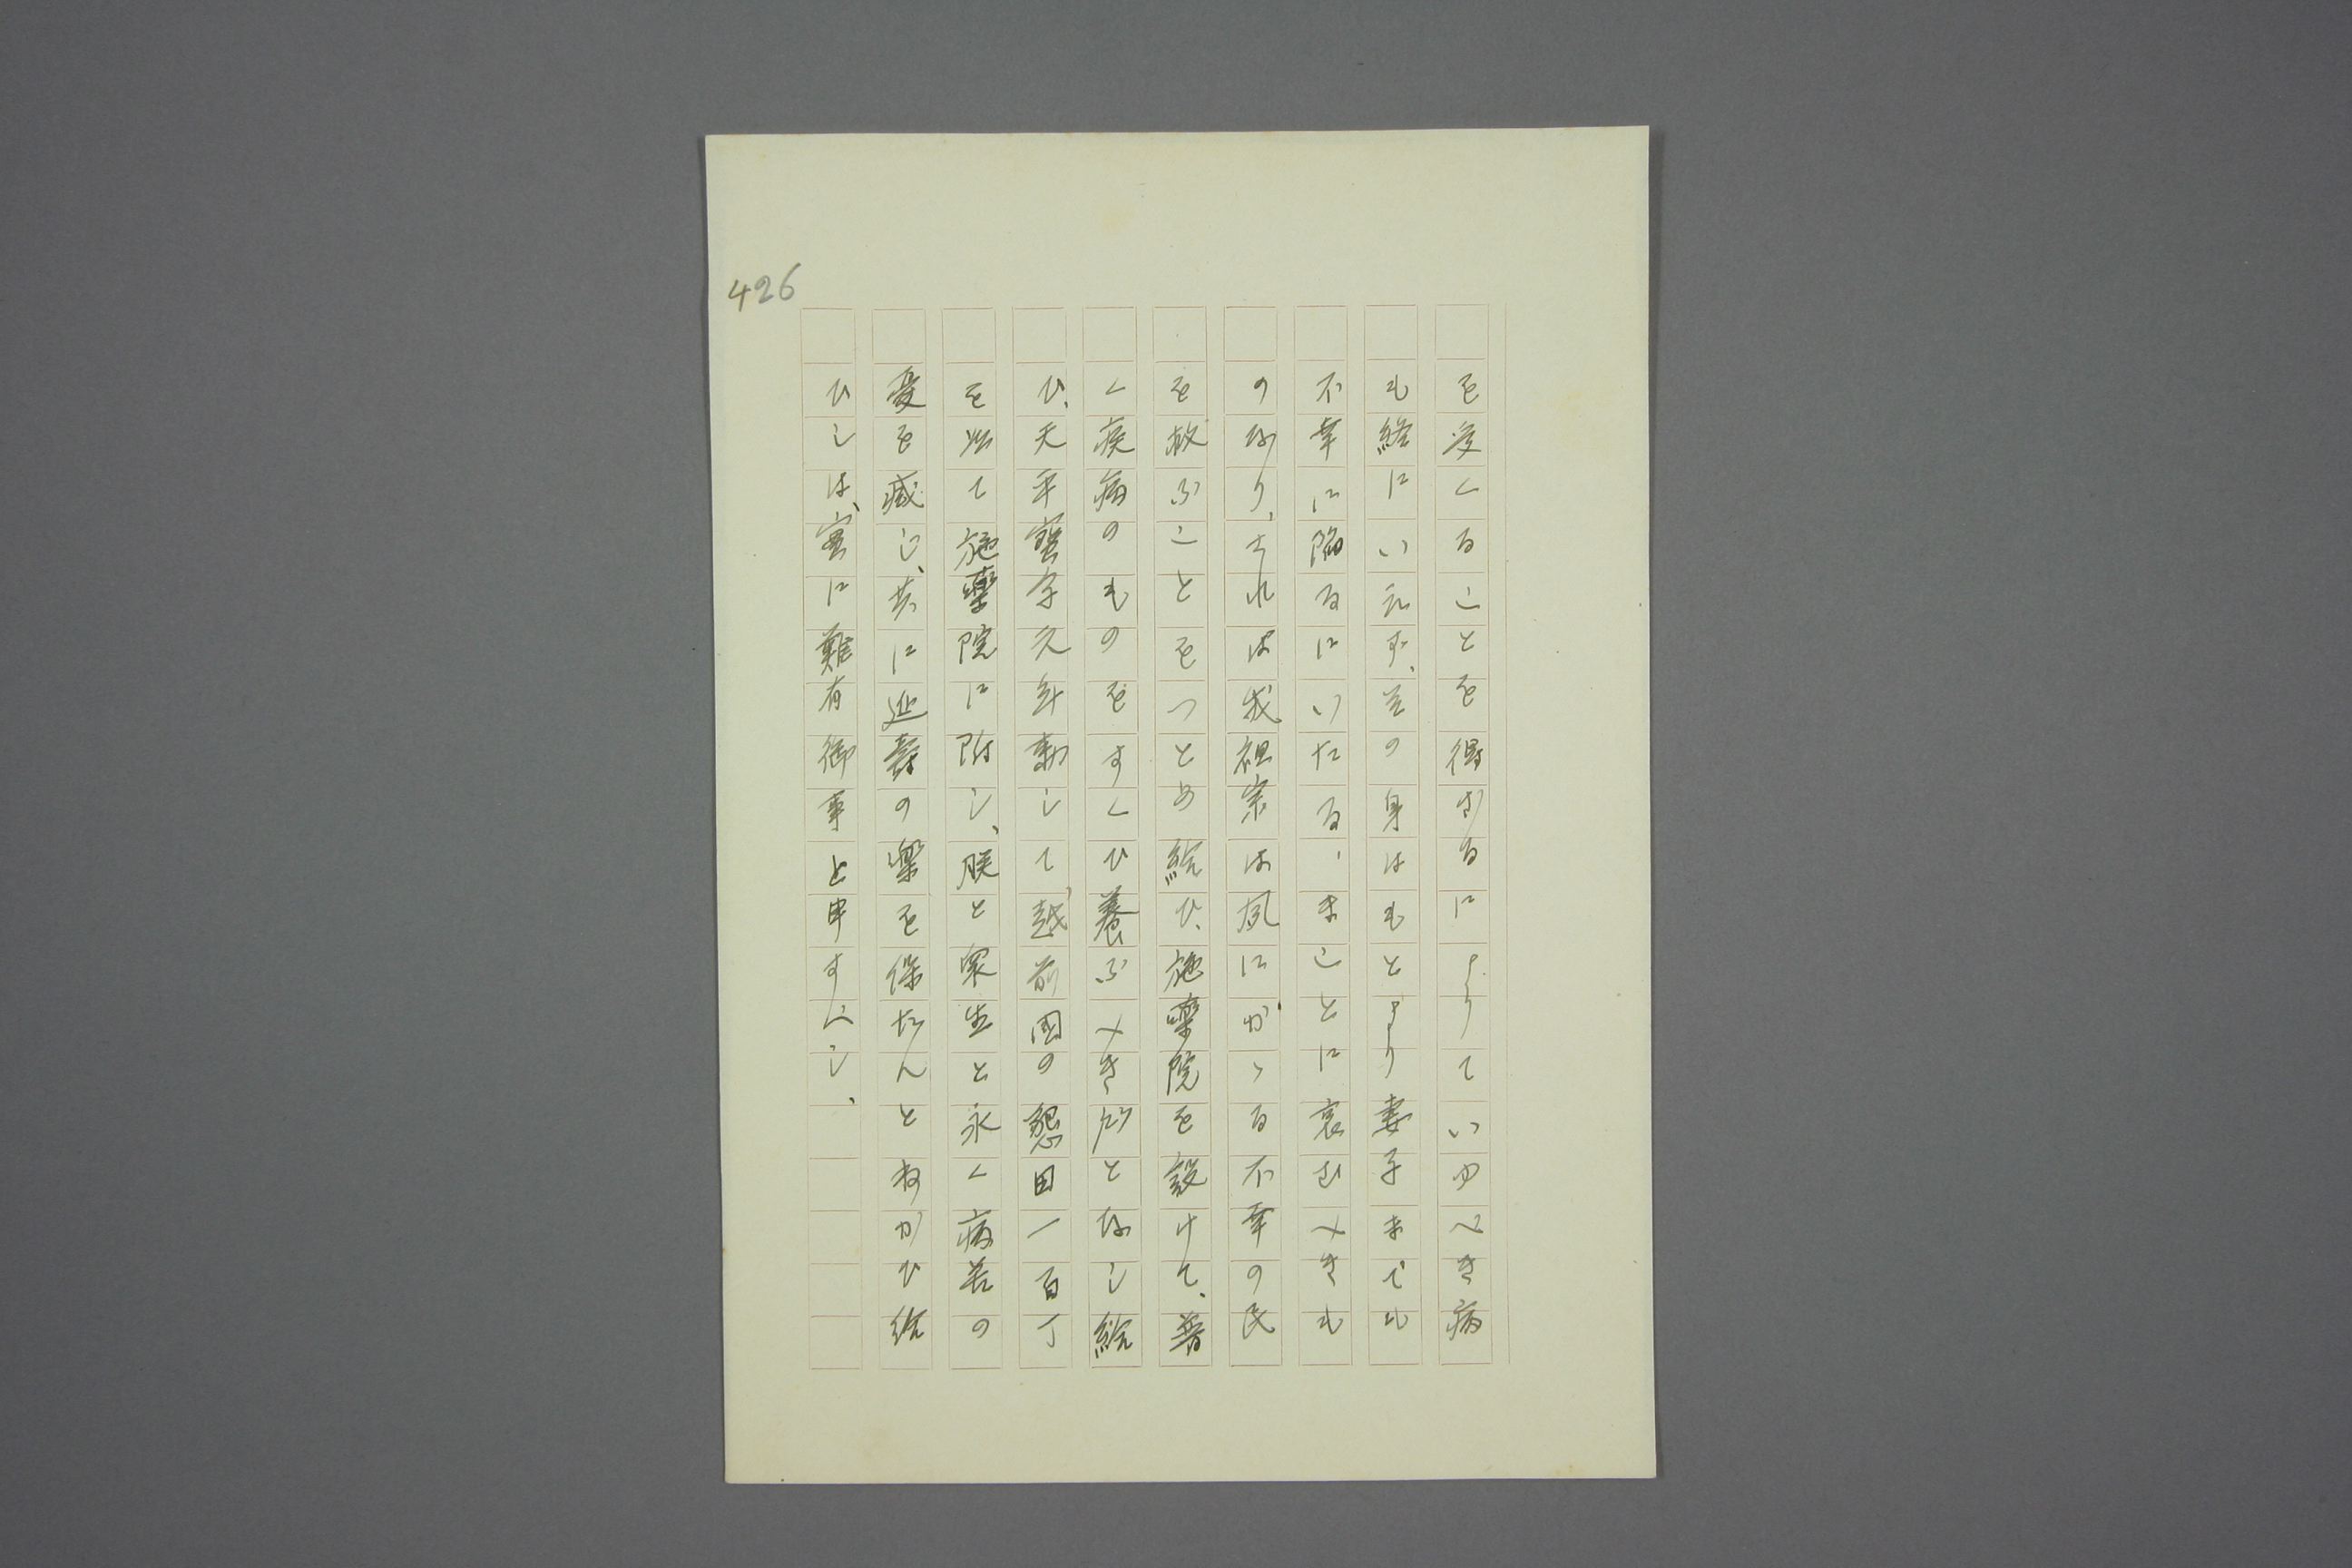 426
を受くることを得ざるによりていゆべき病
も終にいえず、其の身はもとより妻子までも
不幸に陥るにいたる、まことに哀むべきも
のなり、されば我祖宗は夙にかゝる不幸の民
を救ふことをつとめ給ひ、施藥院を設けて、普
く疾病のものをすくひ養ふべき所となし給
ひ、天平寶字元年勅して、越前国の懇田一百丁
を以て施藥院に附し、朕と衆生と永く病苦の
憂を滅し、共に延壽の樂を保たんとねがひ給
ひしは、実に難有御事と申すべし、